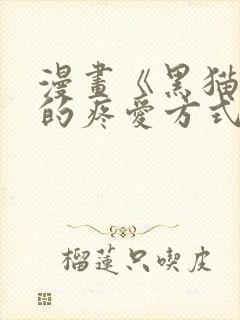 漫畫《黑猫
的疼愛方式
榴蓮只喫皮